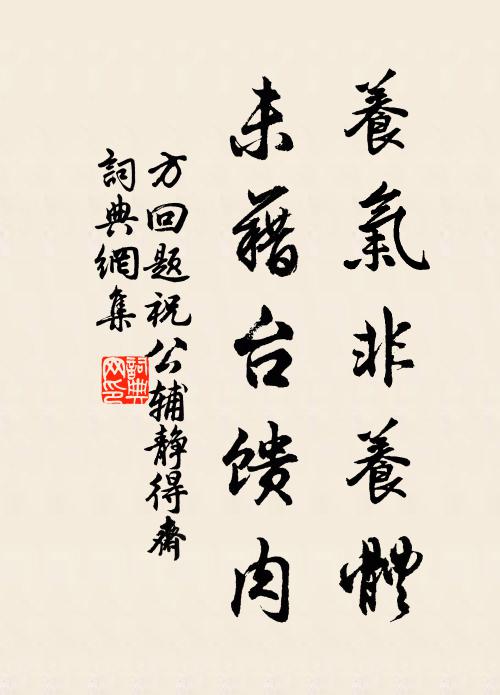 養氣非養體
未藉台馈肉
方回題祝公輔靜得齋
詞典網集
詞典网印